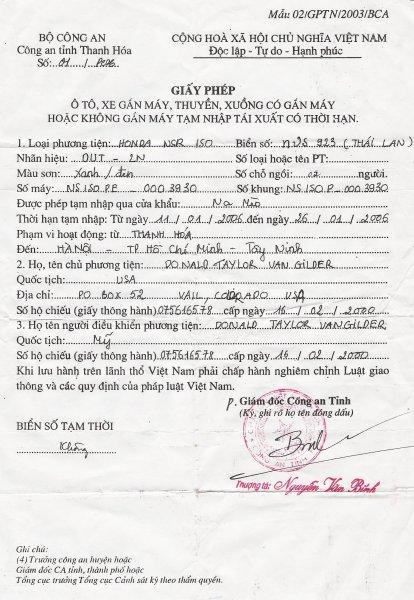 Mẫu: 02/GPTN/2003/BCA
BỘ CÔNG AN
Công an tỉnh Thanh Hóa
Số: 01 /
CỘNG HOÀ XÃ HỘI CHỦ NGHĨA VIỆT NAM
Độc lập - Tự do - Hạnh phúc
GIẤY PHÉP
Ô TÔ, XE GẮN MÁY, THUYỀN, XUỒNG CÓ GẮN MÁY
HOẶC KHÔNG GẮN MÁY TẠM NHẬP TÁI XUẤT CÓ THỜI HẠN.
1. Loại phương tiện: HONDA NSR 150 Biển số: 923 (THÁI LAN)
Nhãn hiệu: OUT - 2N Số loại hoặc tên PT:
Màu sơn: Xanh / đen Số chỗ ngồi: 02 người.
Số máy: NS150PE - 0003930 Số khung: NS150P - 0003930
Được phép tạm nhập qua cửa khẩu: Na Mèo
Thời hạn tạm nhập: Từ ngày 11 / 01 / 2006 đến ngày 26 / 01 / 2006
Phạm vi hoạt động: từ THANH HÓA
Đến: HÀ NỘI - TP Hồ Chí Minh - Tây Ninh
2. Họ, tên chủ phương tiện: DONALD TAYLOR VAN GILDER
Quốc tịch: USA
Địa chỉ: PO BOX 52 VAIL, COLORADO USA
Số hộ chiếu (giấy thông hành) 075616578 cấp ngày 16 / 02 / 2000
3. Họ tên người điều khiển phương tiện: DONALD TAYLOR VANGILDER
Quốc tịch: Mỹ
Số hộ chiếu (giấy thông hành) 075616578 cấp ngày 16 / 02 / 2000
Khi lưu hành trên lãnh thổ Việt Nam phải chấp hành nghiêm chỉnh Luật giao
thông và các quy định của pháp luật Việt Nam.
P. Giám đốc Công an Tỉnh
(Ký, ghi rõ họ tên đóng dấu)
BIỂN SỐ TẠM THỜI
Không
Thượng tá: Nguyễn Văn Bính
Ghi chú:
(4) Trưởng công an huyện hoặc
Giám đốc CA tỉnh, thành phố hoặc
Tổng cục trưởng Tổng cục Cảnh sát ký theo thẩm quyền.